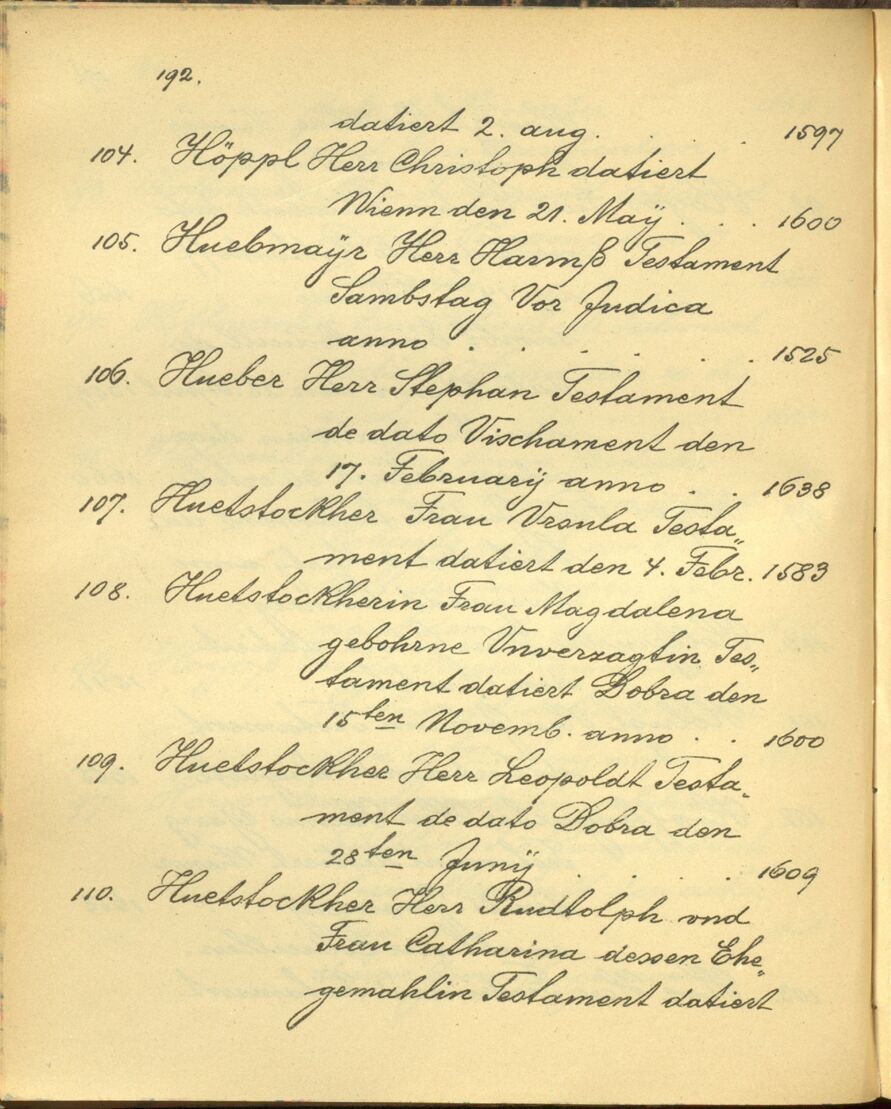 192.
datiert 2. aug. . . 1597
104. Höppl Herr Christoph datiert
Wienn den 21. Maÿ . . . 1600
105. Huebmaÿr Herr Hannß Testament
Sambstag Vor Judica
anno . . . . . . 1525
106. Hueber Herr Stephan Testament
de dato Vischament den
17. Februarÿ anno . . 1638
107. Huetstockher Frau Vrsula Testa„
ment datiert den 4. Febr. 1583
108. Huetstockherin Frau Magdalena
gebohrne Unverzagtin Tes„
tament datiert Dobra den
15ten Novemb. anno . . 1600
109. Huetstockher Herr Leopoldt Testa„
ment de dato Dobra den
28ten Junÿ . . . . 1609
110. Huetstockher Herr Rudtolph vnd
Frau Catharina dessen Ehe„
gemahlin Testament datiert